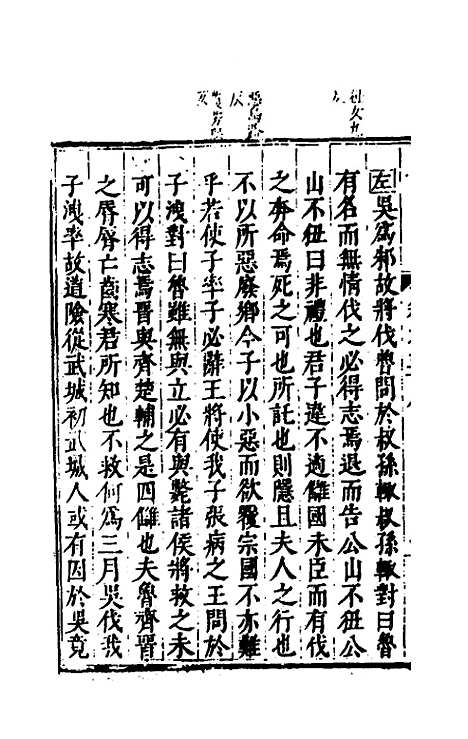 左吳爲邾故將伐魯問於叔孫輒叔孫輒對曰魯
有名而無情伐之必得志焉退而告公山不狃公
山不狃曰非禮也君子違不適讎國未臣而有伐
之奔命焉死之可也所託也則隱且夫人之行也
不以所惡廢鄉今子以小惡而欲覆宗國不亦難
乎若使子率子必辭王將使我子張病之王問於
子洩對曰魯雖無與立必有與斃諸侯將救之未
可以得志焉晉與齊楚輔之是四讎也夫魯齊晉
之脣脣亡齒寒君所知也不救何爲三月吳伐我
子洩率故道險從武城初武城人或有因於吳竟